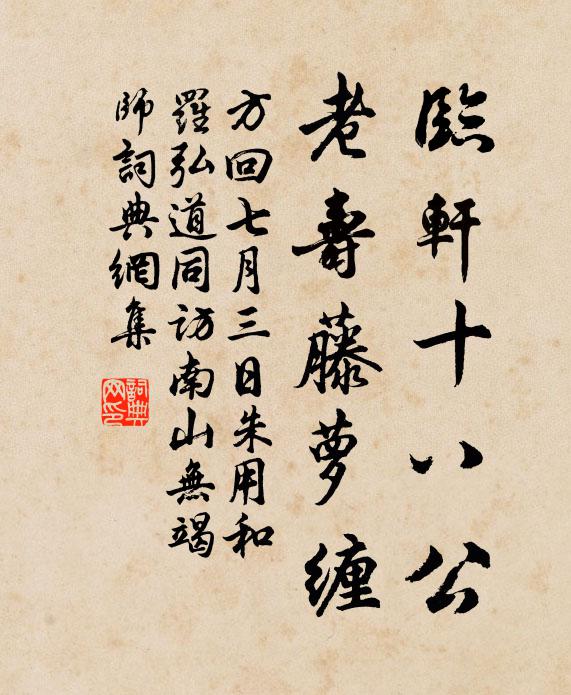 臨軒十八公
老壽藤萝纏
方回七月三日朱用和
羅弘道同访南山無竭
師詞典網集
詞典网印